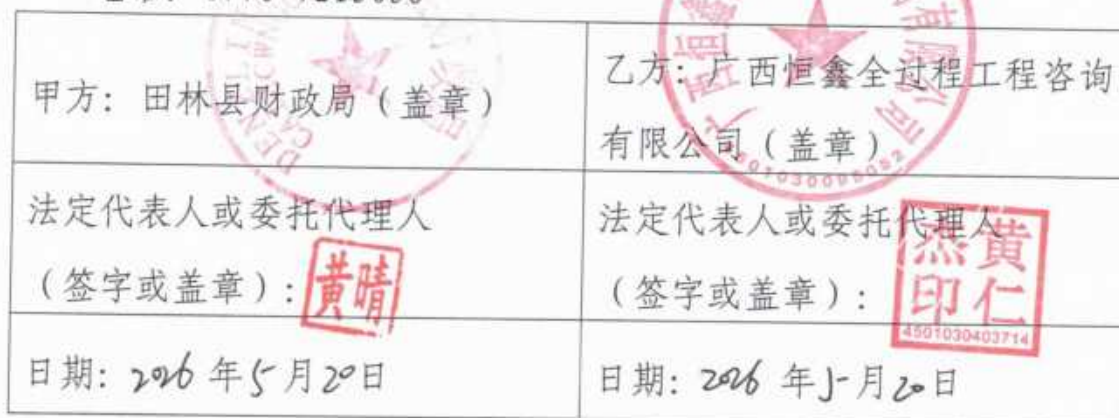 甲方：田林县财政局（盖章）
乙方：广西恒鑫全过程工程咨询
有限公司（盖章）
法定代表人或委托代理人
（签字或盖章）：
黄晴
法定代表人或委托代理人
（签字或盖章）：
黄仁杰印
4501030403714
日期：2026年5月20日
日期：2026年5月20日